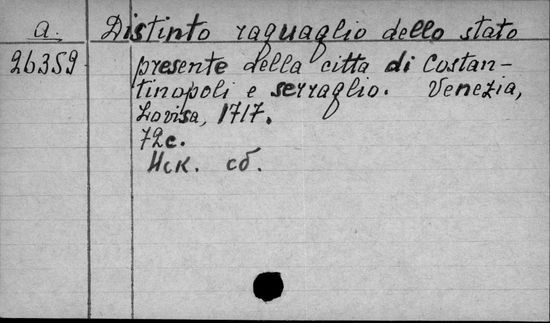 a. Distinto raguaglio dello stato
26359 presente della citta di Costan-
tinopoli e serraglio. Venezia,
Lovisa, 1717.
72c.
Иск. сб.